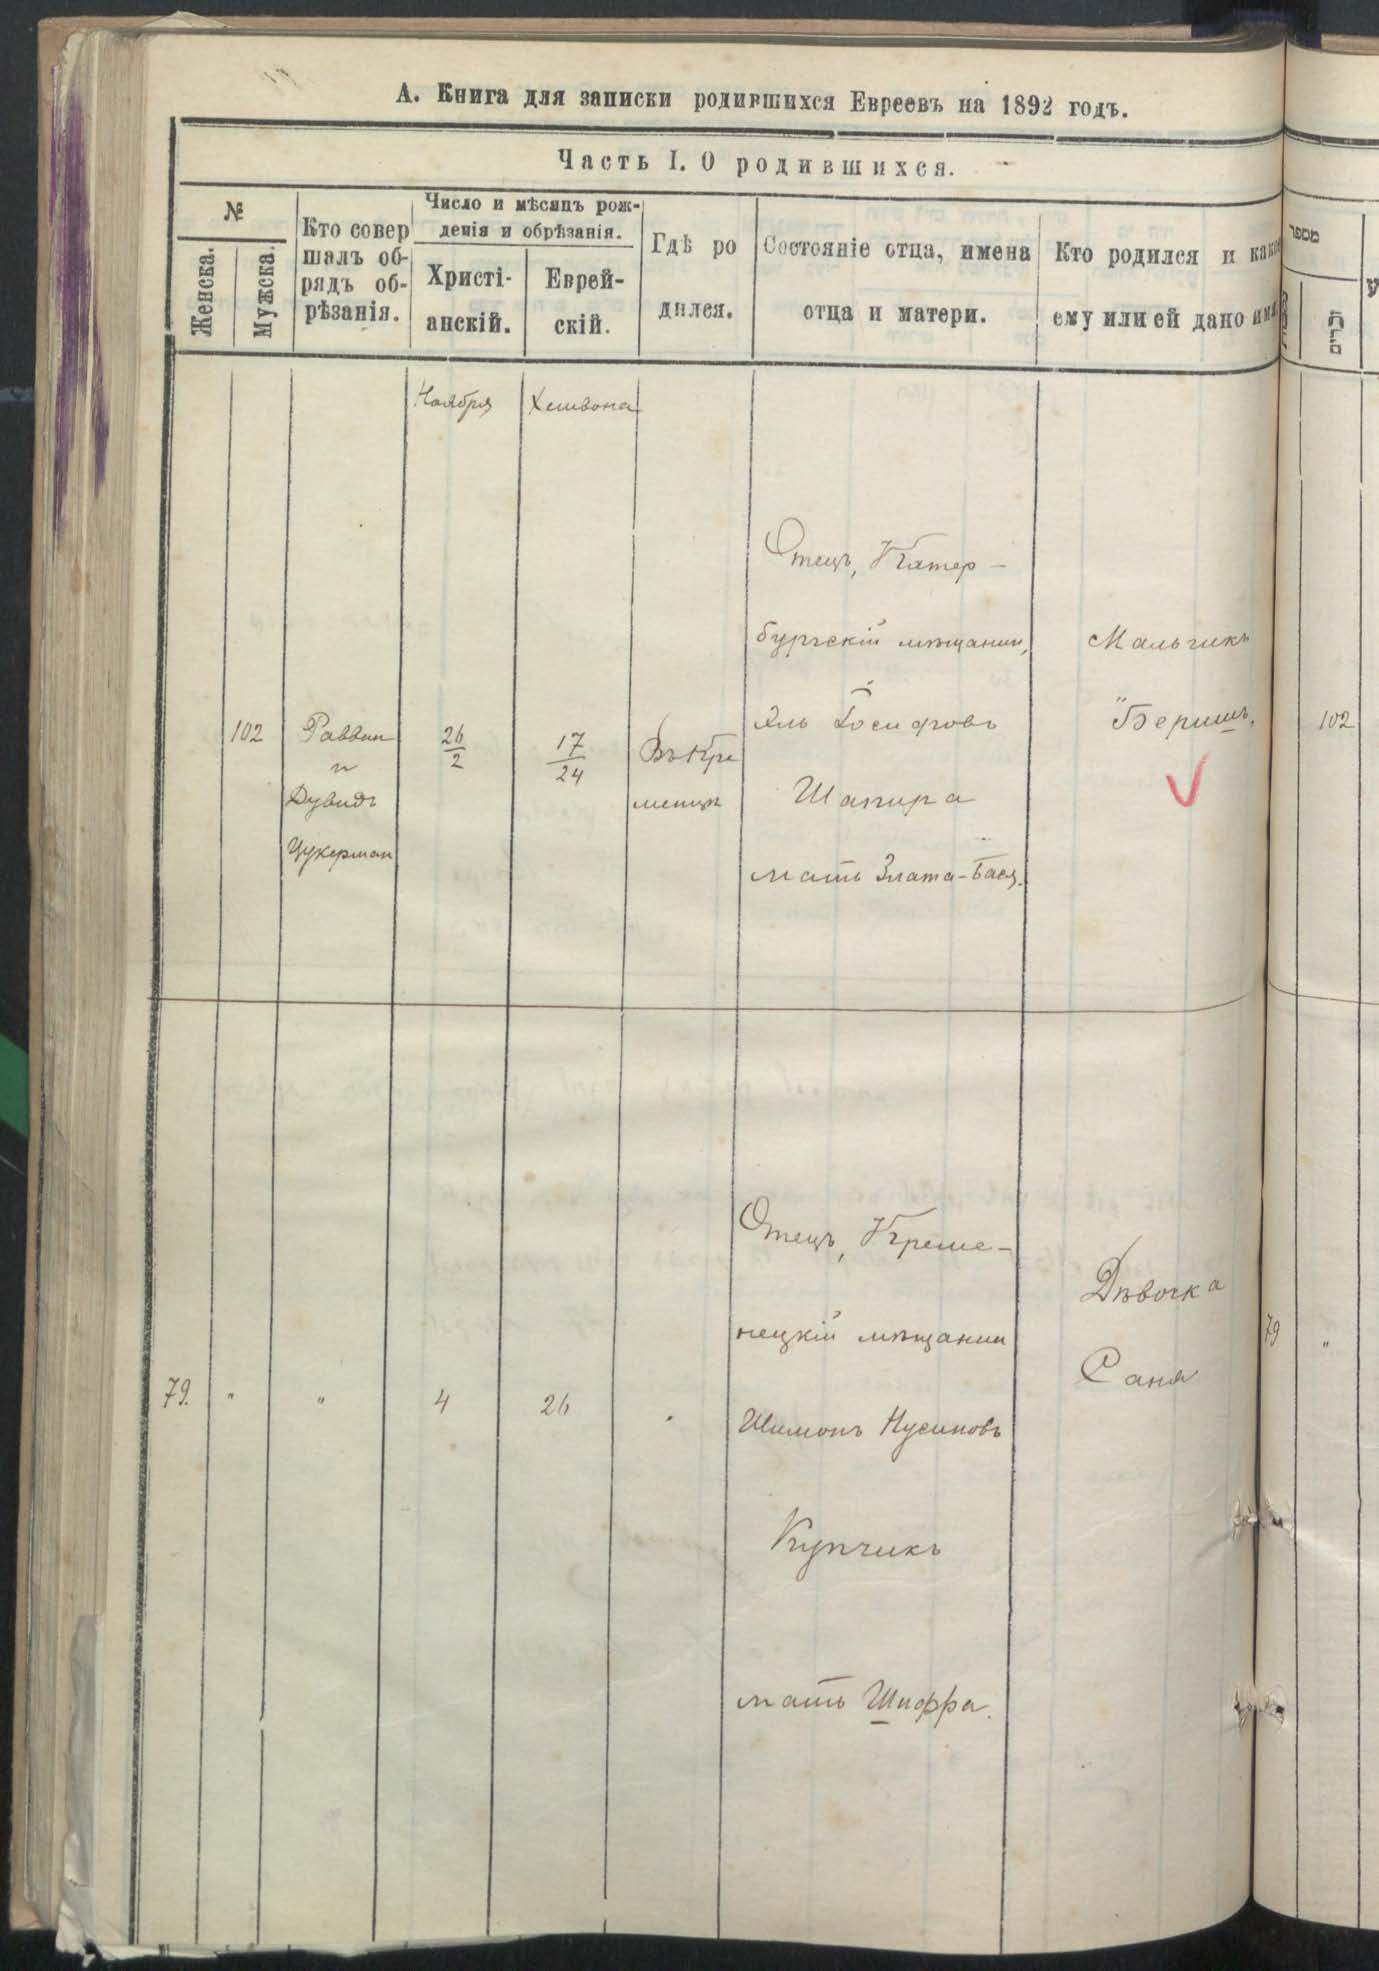 А. Книга для записки родившихся Евреевъ на 1892 годъ.
Часть I. О родившихся.
№
Женска.
Мужска.
Кто совер
шалъ об-
рядъ об-
рѣзанія.
Число и мѣсяцъ рож-
денія и обрѣзанія.
Христі-
анскій.
Еврей-
скій.
Гдѣ ро
дился.
Состояніе отца, имена
отца и матери.
Кто родился и какое
ему или ей дано имя
Ноября
Хешвона
102
Раввин
и
Дувидъ
Цукерман
26
2
17
24
Въ Кре
менцѣ
Отецъ, Катер-
бургскій мѣщанин,
Іосифовъ
Шапира
мать Злата-Бася.
Мальчикъ
"Беришъ,
79.
"
"
4
26
"
Отецъ, Креме-
нецкій мѣщанин
Шимонъ Нусиновъ
Купчикъ
мать Шифра.
Дѣвочка
Саня
מספר
זכרים
102
79
"